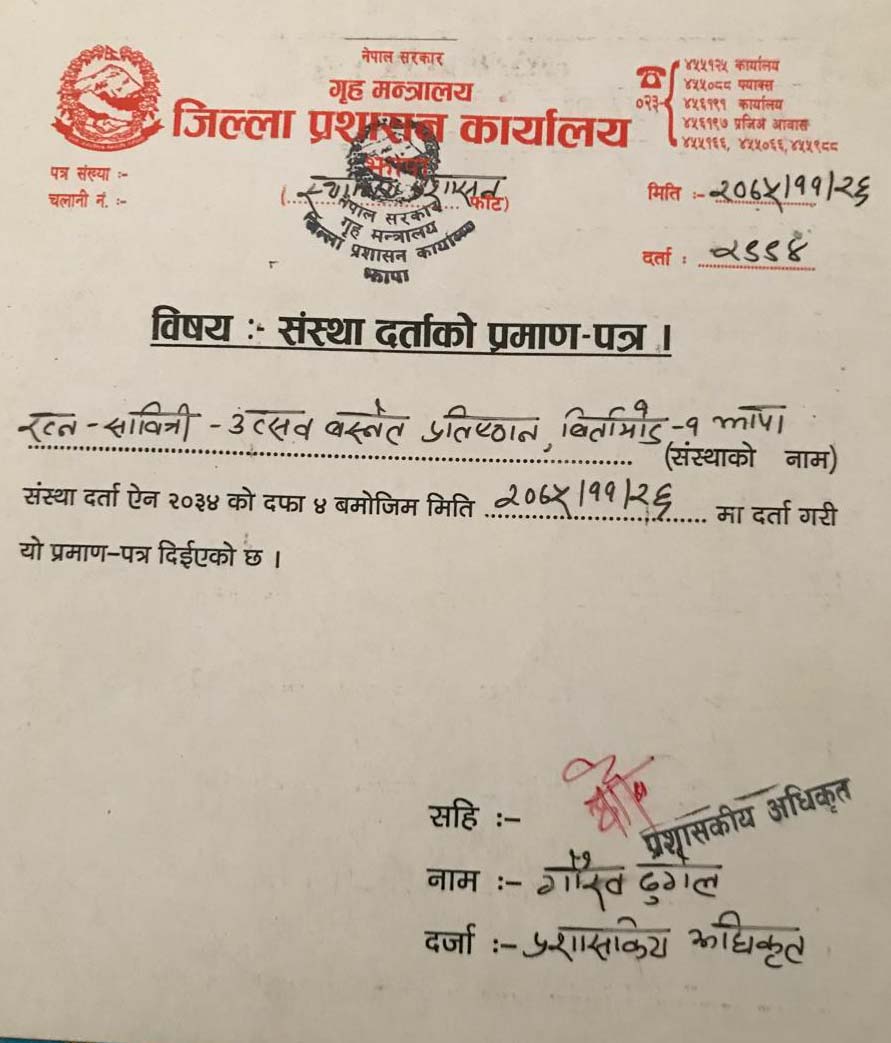 नेपाल सरकार
गृह मन्त्रालय
जिल्ला प्रशासन कार्यालय
झापा
(स्थानिय प्रशासन फाँट)
०२३-
४५५१२५ कार्यालय
४५५०८८ फ्याक्स
४५६१९१ कार्यालय
४५६१९७ प्रजिअ आवास
४५५१६६, ४५५०६६, ४५५९८८
पत्र संख्या :-
चलानी नं. :-
मिति :- २०६५/११/२६
दर्ता : २९९४
नेपाल सरकार
गृह मन्त्रालय
जिल्ला प्रशासन कार्यालय
झापा
विषय :- संस्था दर्ताको प्रमाण-पत्र ।
रत्न - सावित्री - उत्सव बस्नेत प्रतिष्ठान, बिर्तामोड - १ झापा
(संस्थाको नाम)
संस्था दर्ता ऐन २०३४ को दफा ४ बमोजिम मिति २०६५/११/२६ मा दर्ता गरी
यो प्रमाण-पत्र दिईएको छ ।
सहि :-
प्रशासकीय अधिकृत
नाम :- गौरव ढुंगेल
दर्जा :- प्रशासकिय अधिकृत